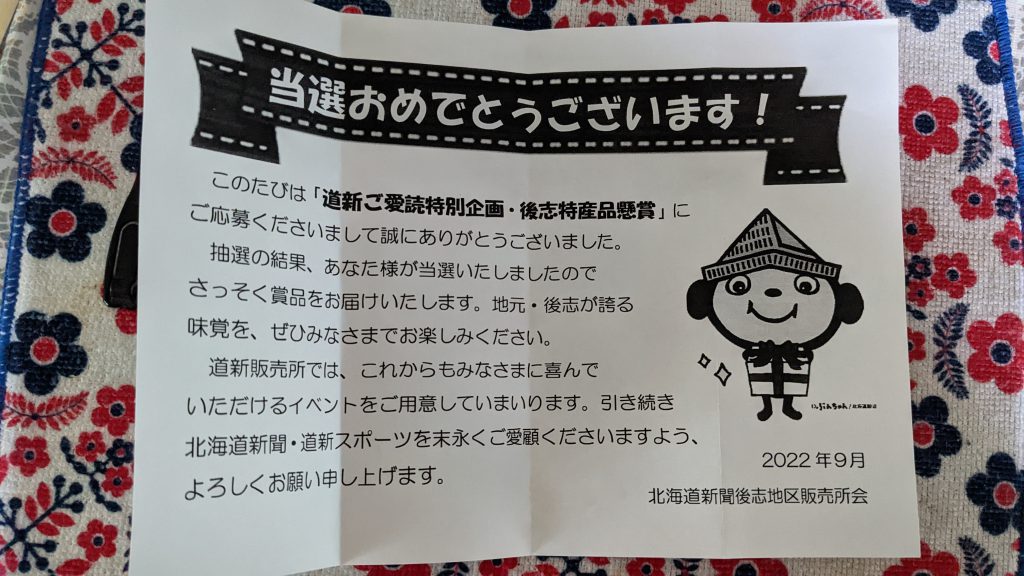 当選おめでとうございます！
このたびは「道新ご愛読特別企画・後志特産品懸賞」に
ご応募くださいまして誠にありがとうございました。
抽選の結果、あなた様が当選いたしましたので
さっそく賞品をお届けいたします。地元・後志が誇る
味覚を、ぜひみなさまでお楽しみください。
道新販売所では、これからもみなさまに喜んで
いただけるイベントをご用意してまいります。引き続き
北海道新聞・道新スポーツを末永くご愛顧くださいますよう、
よろしくお願い申し上げます。
ぶんちゃん/北海道新聞
2022年9月
北海道新聞後志地区販売所会